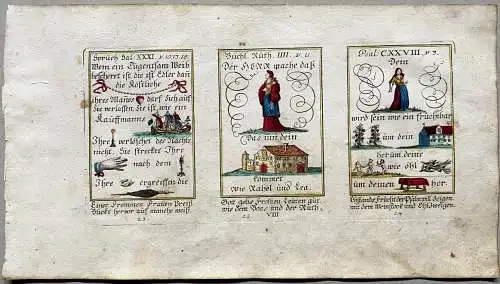 Sprüch Sal. XXXI. v. 10.13.19.
Wem ein Tugentsam Weib
bescheret ist die ist Edler dan̄
die Köstliche
ihres Mañes darf sich auf
Sie verlassen Sie ist wie ein
Kauffmanns
Ihre verlöschet des Nachts
nicht. Sie strecket Ihre
nach dem
Ihre ergreiffen die
Einer Frommen Frauen Preiß
Blickt hervor auf manche weiß.
Buchl. Ruth. IIII. v. 11
Der HERR mache daß
Das um dein
kommet
wie Rahel und Lea.
wie dem Boas und der Ruth.
VIII
Psal. CXXVIII. v. 3.
Dein
wird sein wie ein fruchtbar
üm dein
her üm deine
wie öhl
üm deinen her.
mit dem Weinstock und Öhlzweigen.